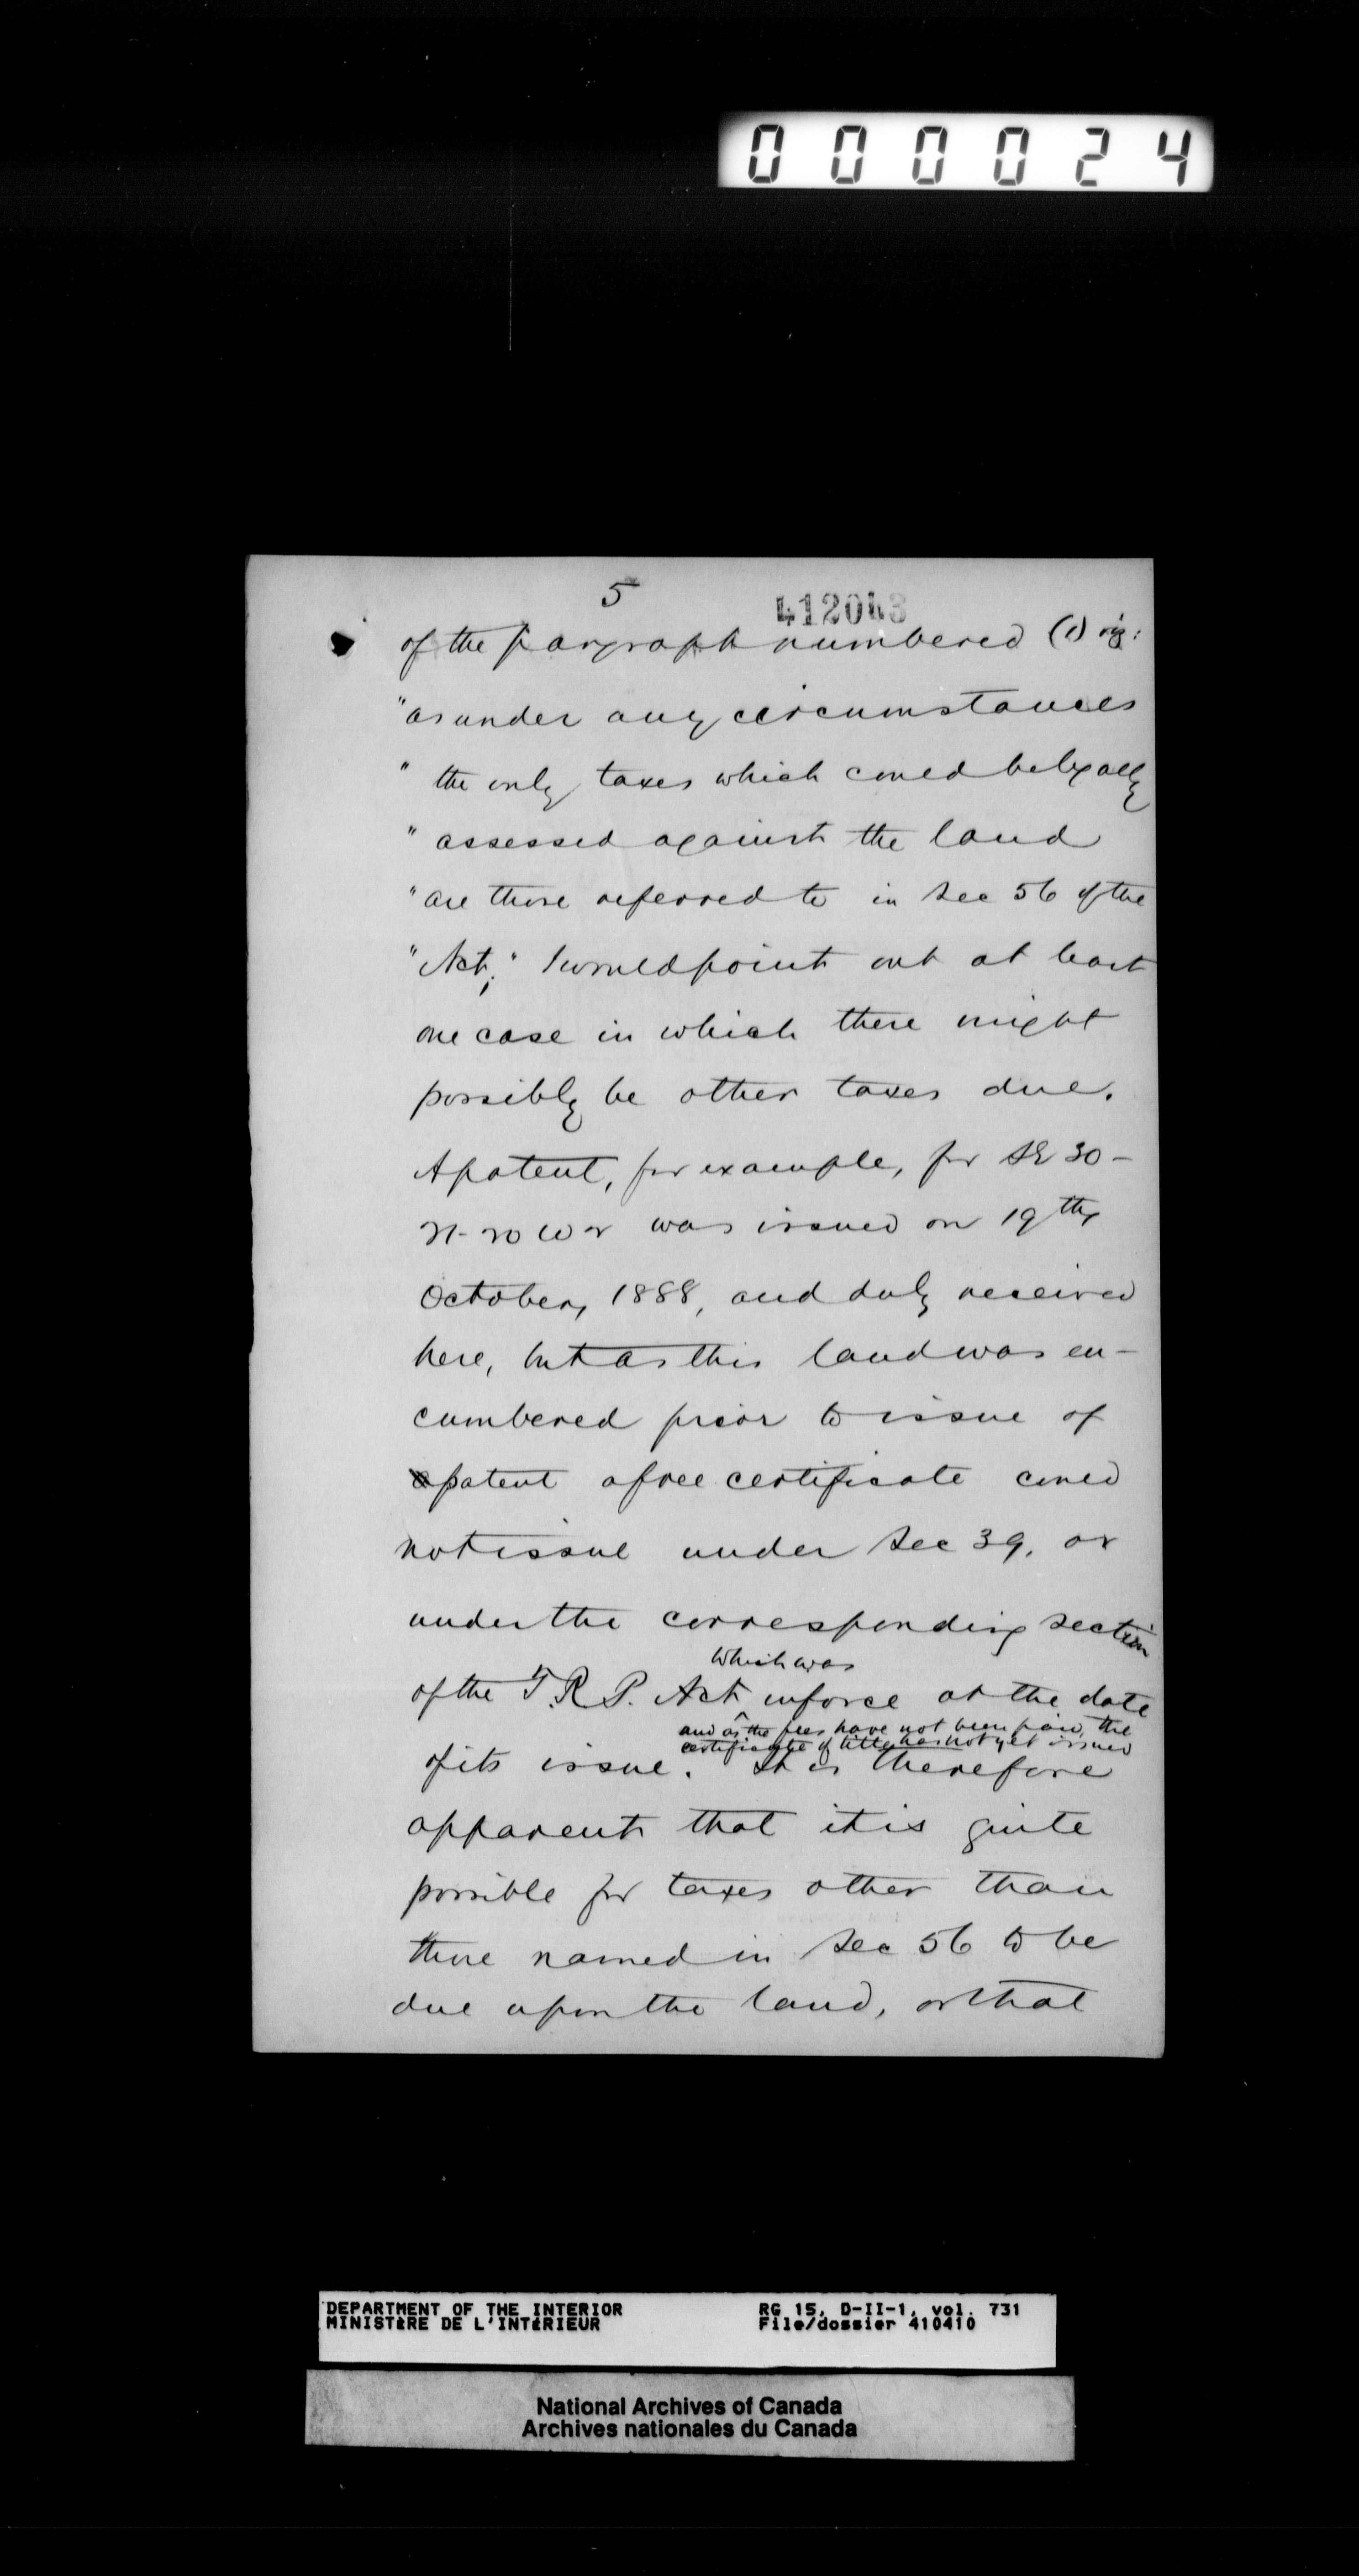 000024
5
412043
of the pargraph numbered (1) viz:
"as under any circumstances
" the only taxes which could be legally
" assessed against the land
" are those referred to in Sec 56 of the
" Act," I would point out at least
one case in which there might
possibly be other taxes due.
A patent, for example, for SE 30-
was issued on 19th
October, 1888, and duly received
here, but as this land was en-
cumbered prior to issue of
patent a free certificate could
not issue under Sec 39, or
under the corresponding section
which was
of the T.R.P. Act in force at the date
and as the fees have not been paid, the
certificate of title has not yet issued
of its issue. It is therefore
apparent that it is quite
possible for taxes other than
those named in Sec 56 to be
due upon the land, or that
DEPARTMENT OF THE INTERIOR
MINISTÈRE DE L'INTÉRIEUR
RG 15, D-II-1, vol. 731
File/dossier 410410
National Archives of Canada
Archives nationales du Canada